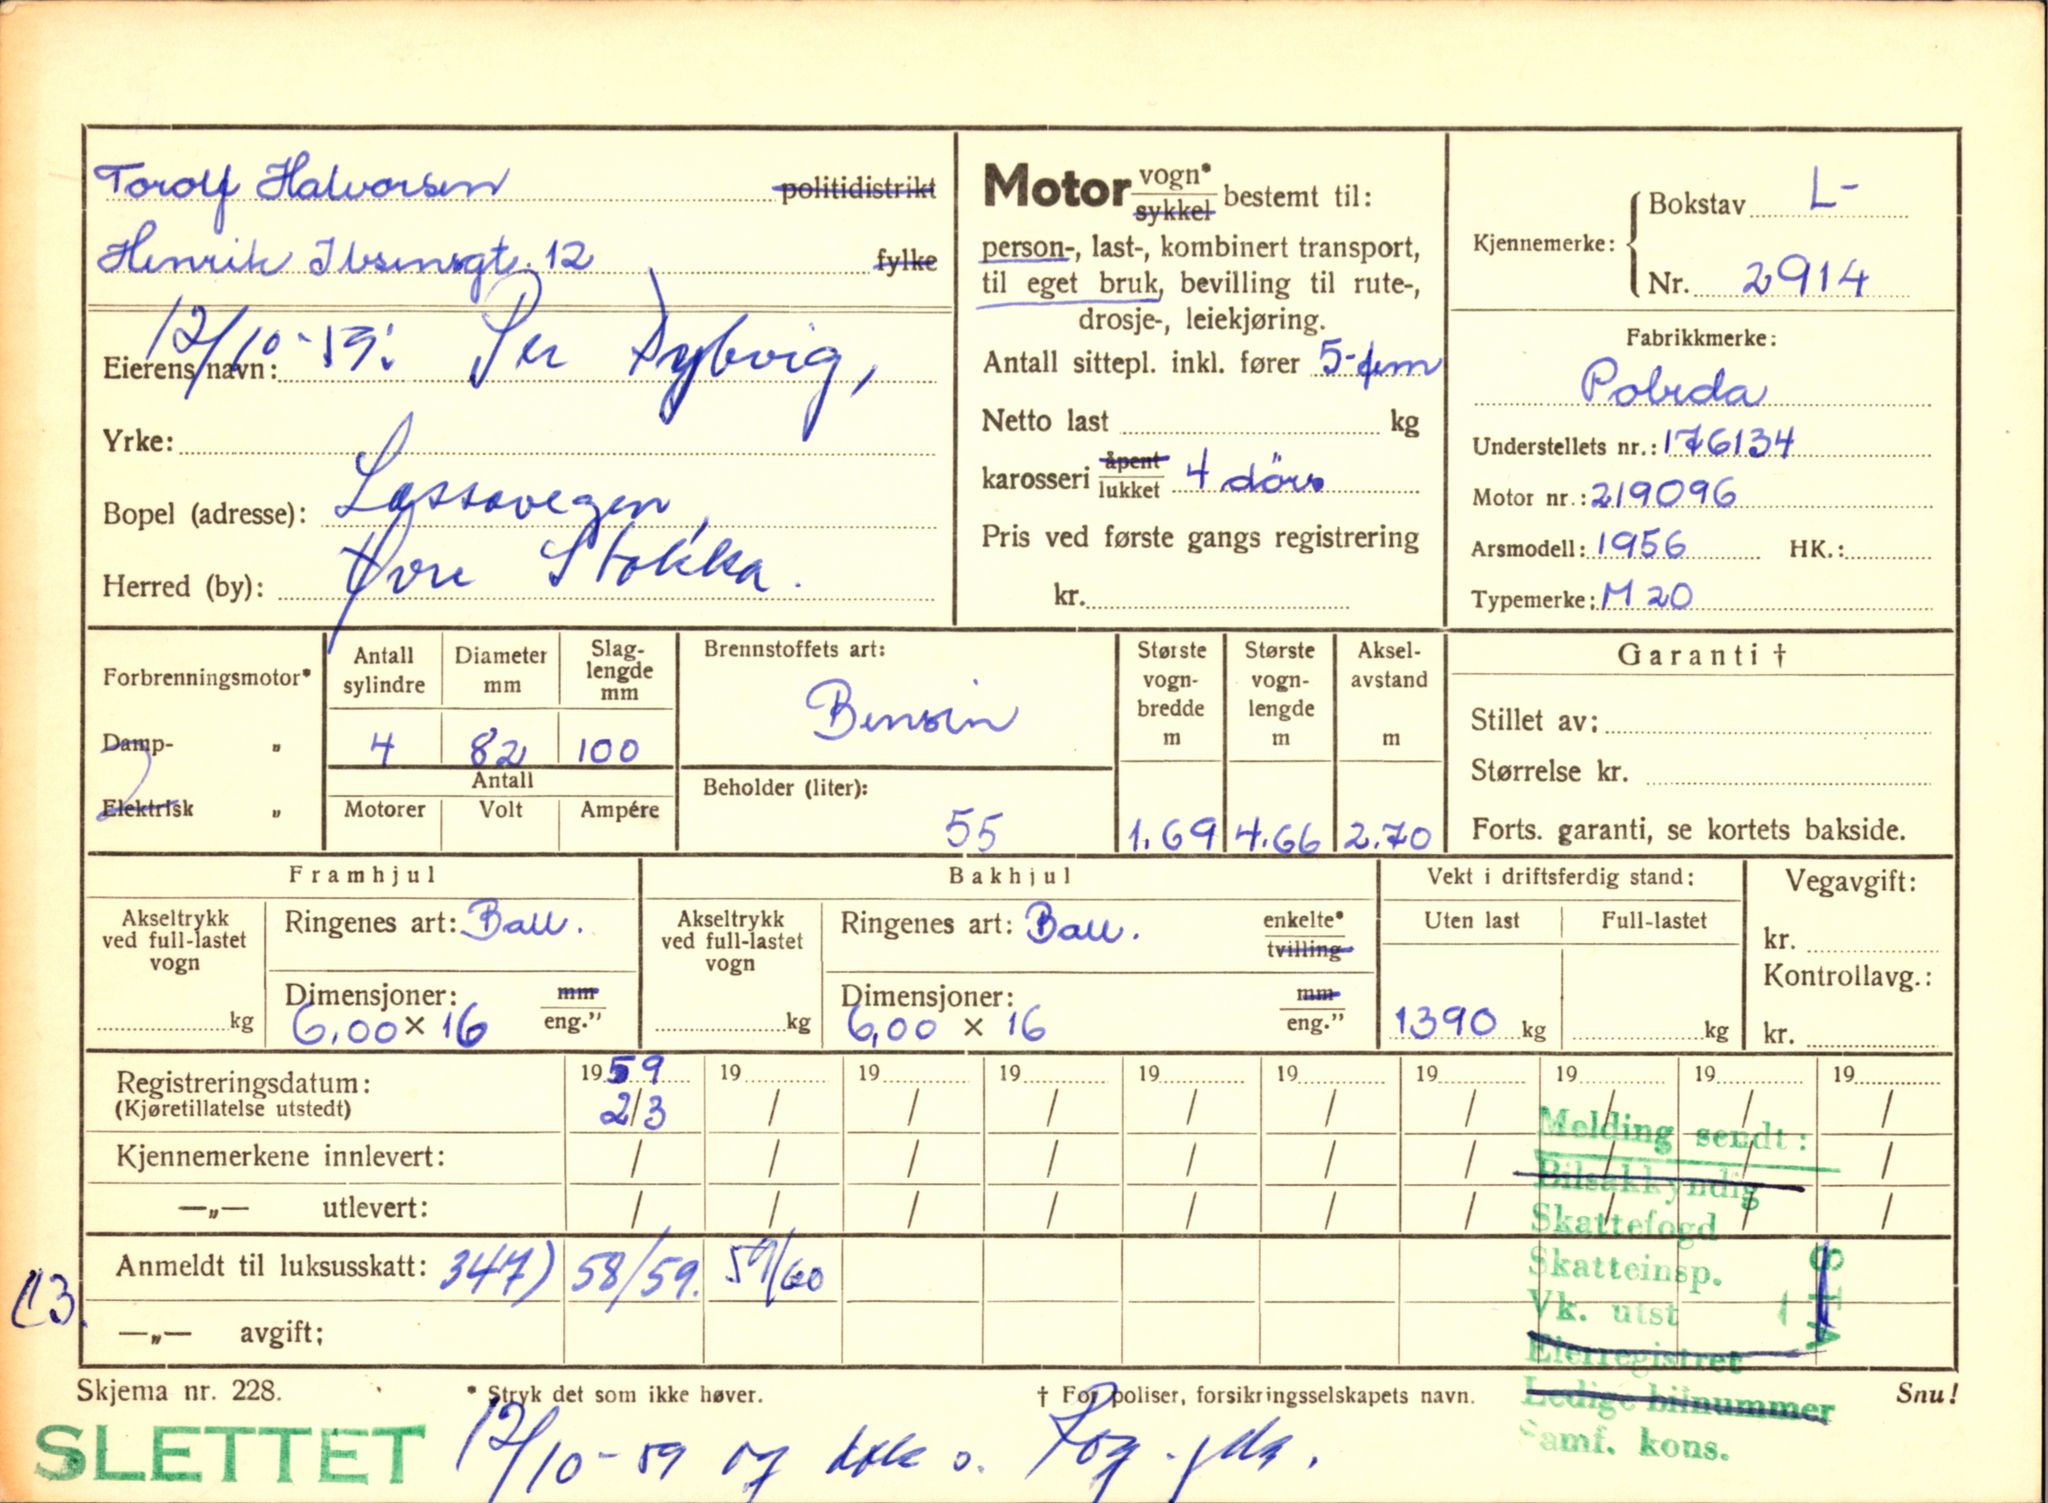 Torolf Halvorsen politidistrikt
Henrik Ibsensgt. 12 fylke
12/10-59: Per Dybvig,
Eierens navn:
Yrke:
Bopel (adresse): Lassavegen,
Herred (by): Øvre Stokka.
Motor vogn* sykkel bestemt til:
person-, last-, kombinert transport,
til eget bruk, bevilling til rute-,
drosje-, leiekjøring.
Antall sittepl. inkl. fører 5-fem
Netto last kg
karosseri åpent lukket 4 dörs
Pris ved første gangs registrering
kr.
Kjennemerke: Bokstav L-
Nr. 2914
Fabrikkmerke:
Pobeda
Understellets nr.: 176134
Motor nr.: 219096
Arsmodell: 1956 HK.:
Typemerke: M 20
Forbrenningsmotor*
Damp- „
Elektrisk „
Antall sylindre Diameter mm Slag-lengde mm
4 82 100
Antall
Motorer Volt Ampére
Brennstoffets art:
Bensin
Beholder (liter):
55
Største vogn-bredde m
1.69
Største vogn-lengde m
4.66
Aksel-avstand m
2.70
Garanti †
Stillet av:
Størrelse kr.
Forts. garanti, se kortets bakside.
Framhjul
Akseltrykk ved full-lastet vogn
kg
Ringenes art: Ball.
Dimensjoner: mm eng."
6.00 × 16
Bakhjul
Akseltrykk ved full-lastet vogn
kg
Ringenes art: Ball. enkelte* tvilling
Dimensjoner: mm eng."
6,00 × 16
Vekt i driftsferdig stand:
Uten last Full-lastet
1390 kg kg
Vegavgift:
kr.
Kontrollavg.:
kr.
Registreringsdatum: 1959 19 19 19 19 19 19 19 19 19
(Kjøretillatelse utstedt) 2/3 / / / / / / / / /
Kjennemerkene innlevert: / / / / / / / / / /
—„— utlevert: / / / / / / / / / /
Anmeldt til luksusskatt: 347) 58/59. 59/60
—„— avgift;
Melding sendt:
Bilsakkyndig
Skattefogd
Skatteinsp.
Vk. utst
Eierregistret
Ledige bilnummer
Samf. kons.
Skjema nr. 228. * Stryk det som ikke høver. † For poliser, forsikringsselskapets navn. Snu!
SLETTET 12/10-59 og